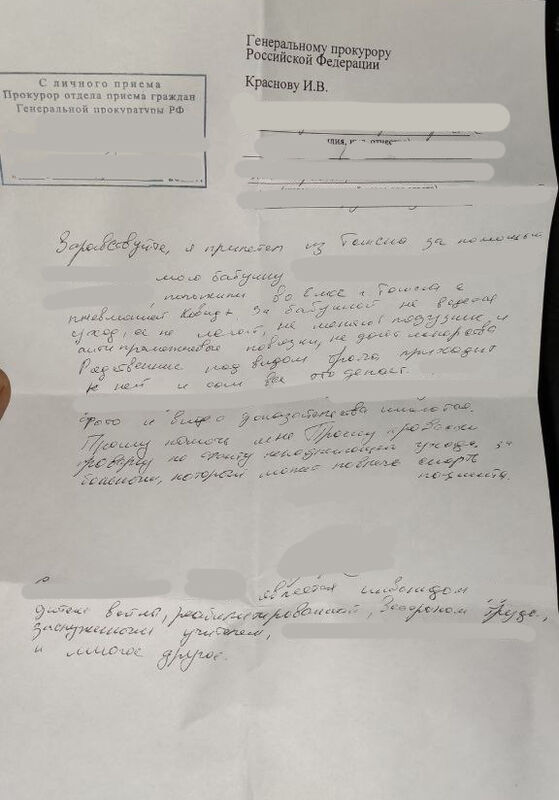 Генеральному прокурору
Российской Федерации
Краснову И.В.
С личного приема
Прокурор отдела приема граждан
Генеральной прокуратуры РФ
Здравствуйте, я прилетел из Томска за помощью
мою бабушку
положили во емк г. Томска с
пневмонией Ковид. За бабушкой не ведется
уход, ее не моют, не меняют подгузник, и
антипролежневые повязки, не дают лекарства
Родственник под видом врача приходит
к ней и сам все это делает.
Фото и видео доказательства имеются.
Прошу помочь мне Прошу провести
проверку по факту ненадлежащего ухода за
больными, который может повлечь смерть
пациента.
является инвалидом
дитем войны, реабилитированной, Ветераном труда,
заслуженным учителем,
и многое другое.